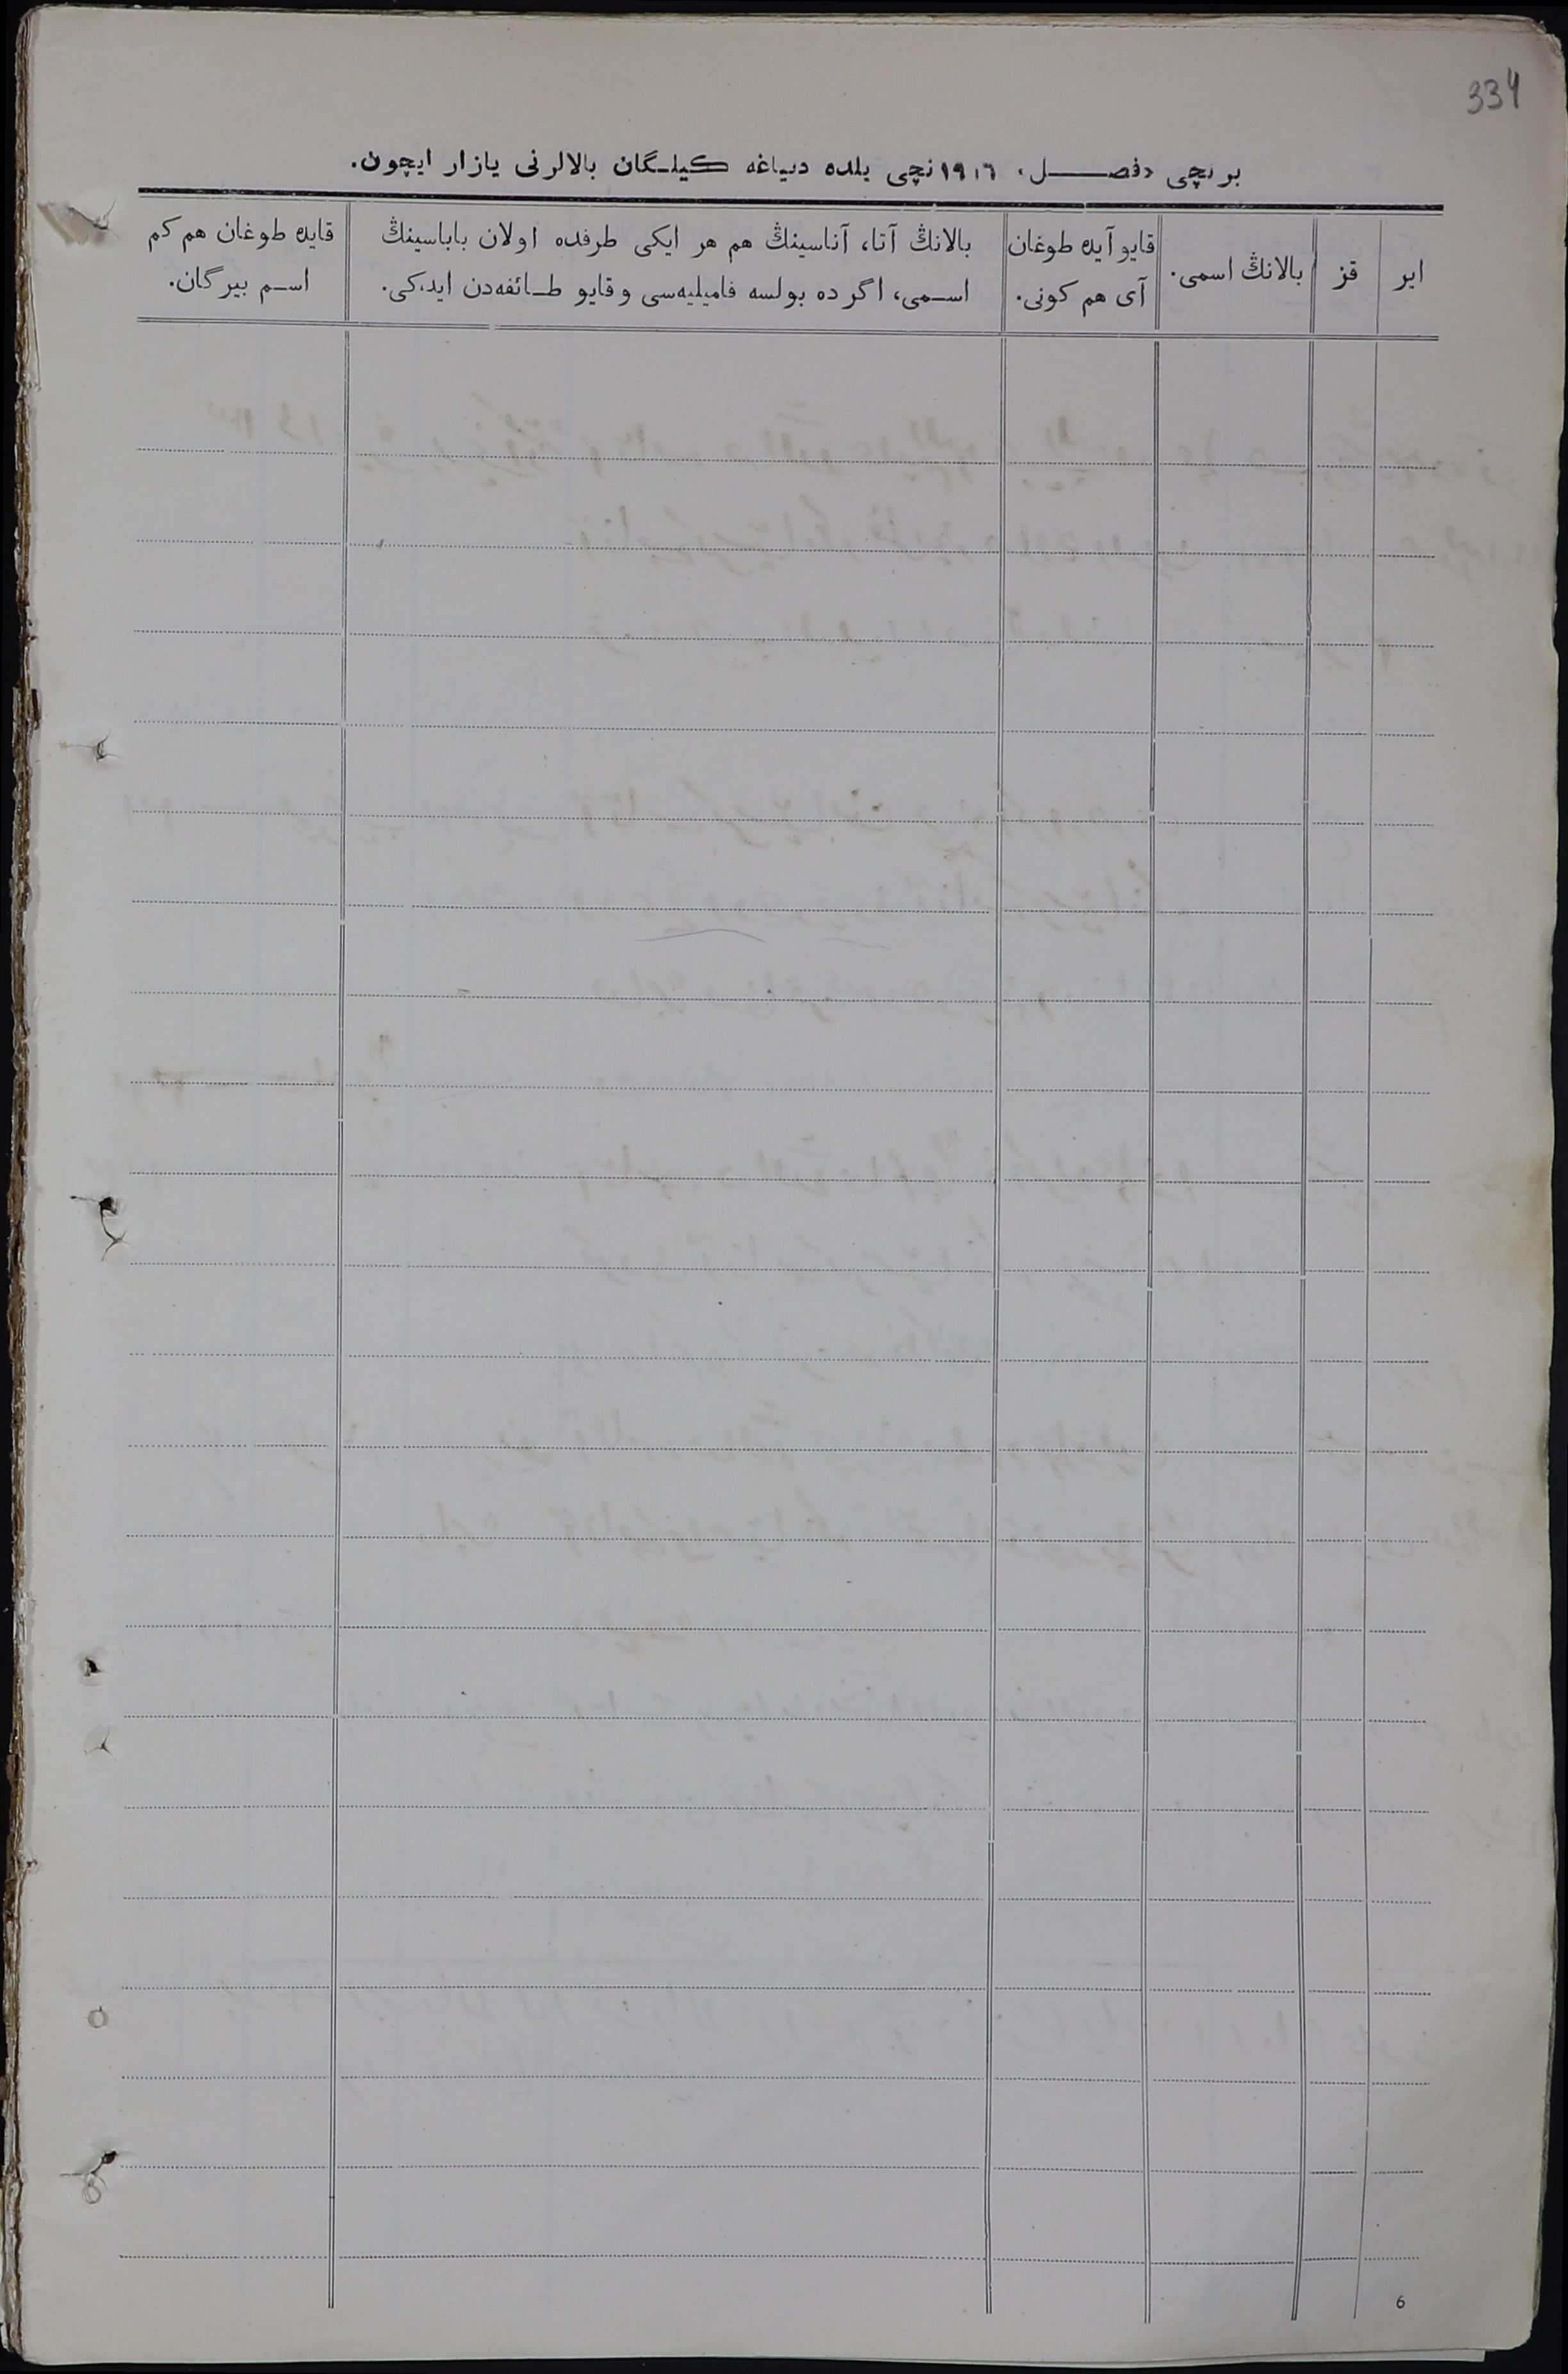 334
برنچی «فصل» ١٩١٦نچی یلده دنیاغه کیلگان بالالرنی یازار ایچون.
ایر
قز
بالانڭ اسمی.
قایو آیده طوغان
آی هم کونی.
بالانڭ آتا، آناسینڭ هم هر ایکی طرفده اولان باباسینڭ
اسمی، اگر ده بولسه فامیلیه‌سی و قایو طائفه‌دن ایدکی.
قایده طوغان هم کم
اسم بیرگان.
6